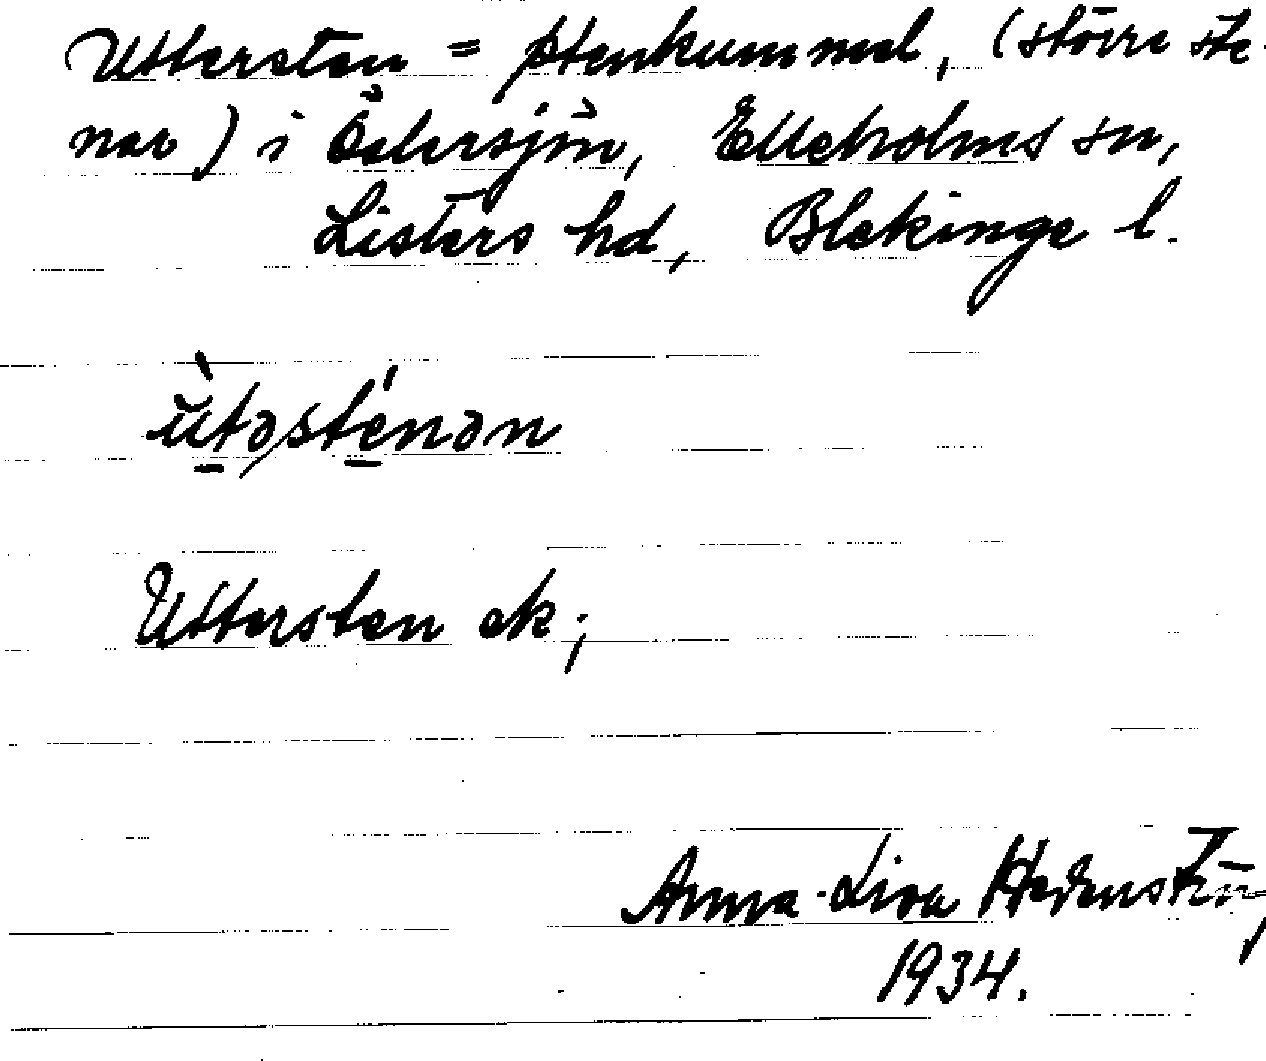 Uttersten = stenkummel, (större ste-
nar) i Östersjön, Elleholms sn,
Listers hd, Blekinge l.
ùtəsténən
Uttersten ek;
Anna-Lisa
1934.